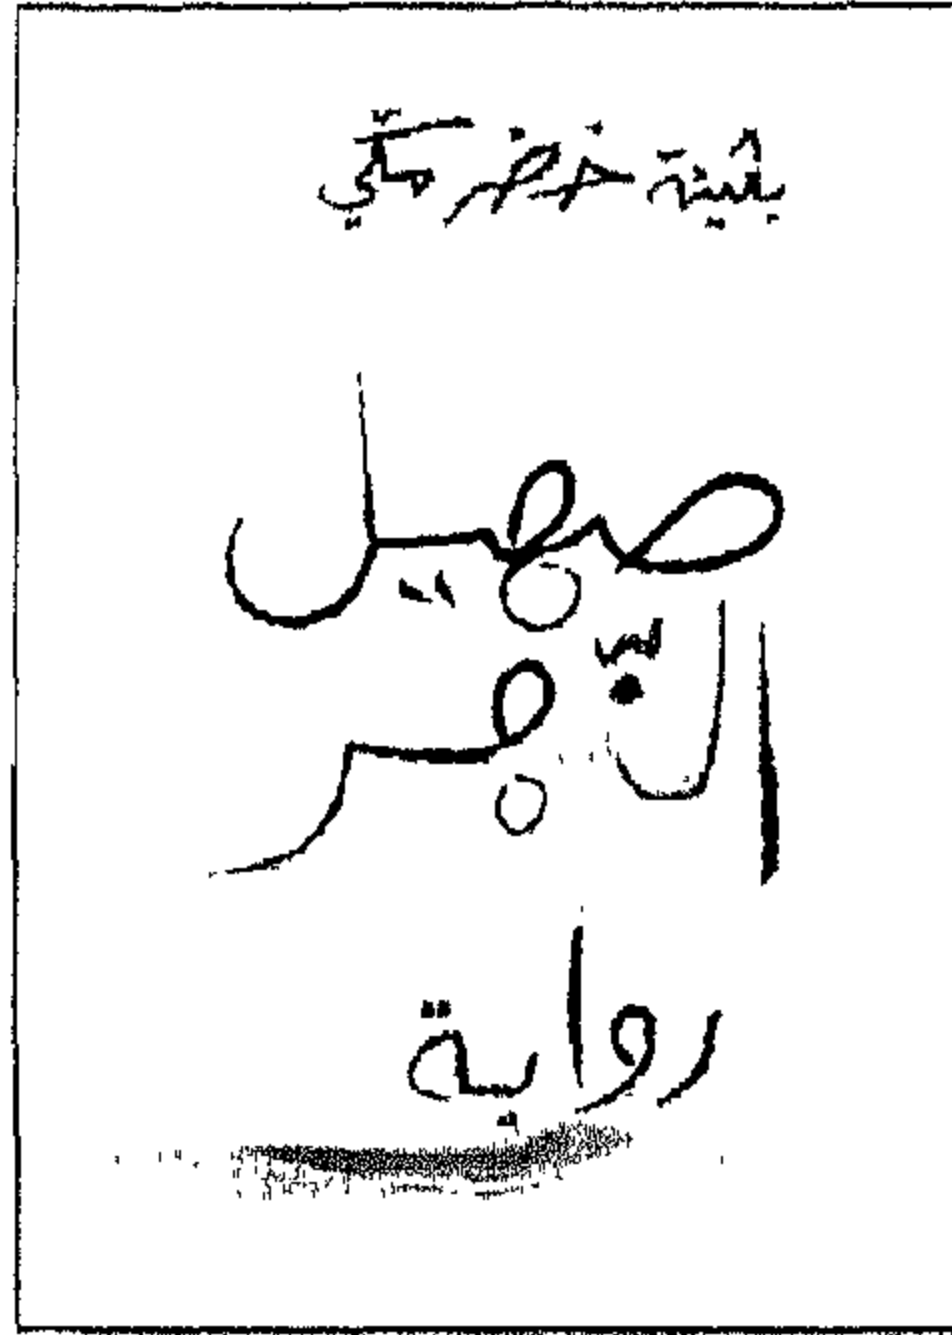 بثينة خضر مكي
صهيل
النهر
رواية